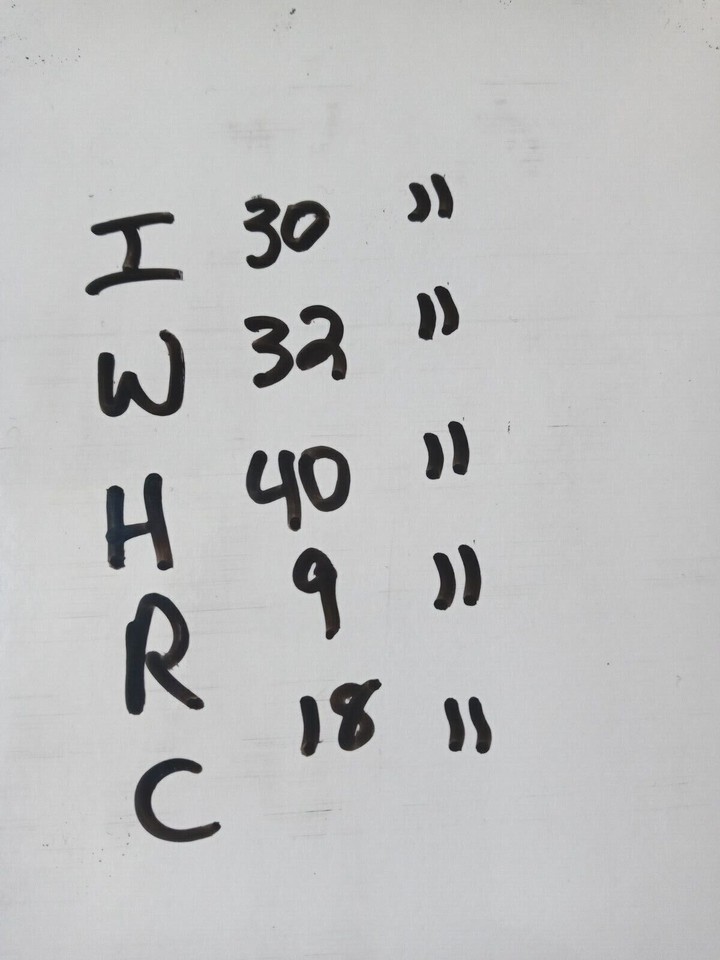 I 30 "
W 32 "
H 40 "
R 9 "
C 18 "